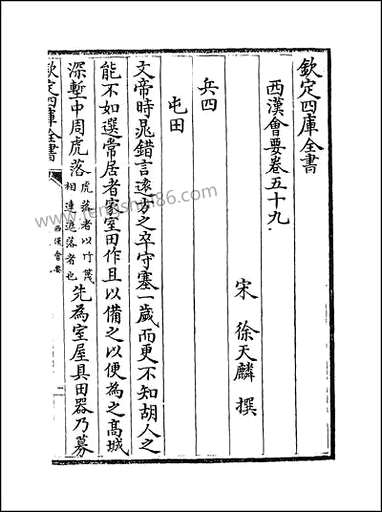 欽定四庫全書
西漢會要卷五十九
宋 徐天麟 撰
兵四
屯田
文帝時鼂錯言遠方之卒守塞一歲而更不知胡人之
能不如選常居者家室田作且以備之以便為之高城
深塹中周虎落虎落者以竹篾相連遮落者也先為室屋具田器乃募
欽定四庫全書
西漢會要